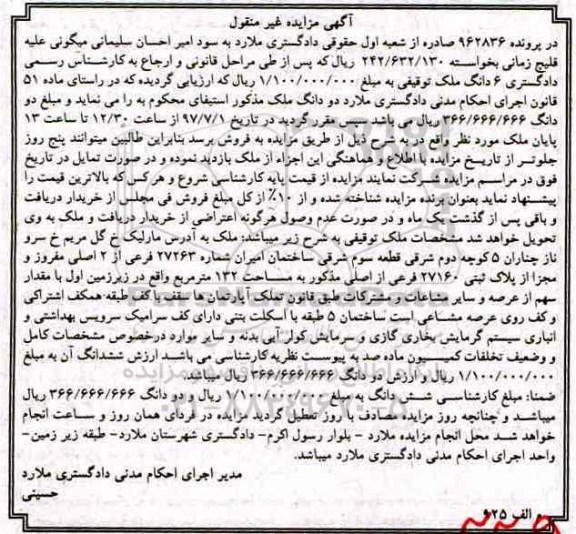 آگهی مزایده غیر منقول
در پرونده ۹۶۲۸۳۶ صادره از شعبه اول حقوقی دادگستری ملارد به سود امیر احسان سلیمانی میگونی علیه
قلیچ زمانی بخواسته ۲۴۲/۶۳۲/۱۳۰ ریال که پس از طی مراحل قانونی و ارجاع به کارشناس رسمی
دادگستری ۶ دانگ ملک توقیفی به مبلغ ۱/۱۰۰/۰۰۰/۰۰۰ ریال که ارزیابی گردیده که در راستای ماده ۵۱
قانون اجرای احکام مدنی دادگستری ملارد دو دانگ ملک مذکور استیفای محکوم به را می نماید و مبلغ دو
دانگ ۳۶۶/۶۶۶/۶۶۶ ریال می باشد سپس مقرر گردید در تاریخ ۹۷/۷/۱ از ساعت ۱۲/۳۰ تا ساعت ۱۳
پایان ملک مورد نظر واقع در به شرح ذیل از طریق مزایده به فروش برسد بنابراین طالبین میتوانند پنج روز
جلوتر از تاریخ مزایده با اطلاع و هماهنگی این اجراء از ملک بازدید نموده و در صورت تمایل در تاریخ
فوق در مراسم مزایده شرکت نمایند مزایده از قیمت پایه کارشناسی شروع و هرکس که بالاترین قیمت را
پیشنهاد نماید بعنوان برنده مزایده شناخته شده و از ۱۰٪ از کل مبلغ فروش فی مجلس از خریدار دریافت
و باقی پس از گذشت یک ماه و در صورت عدم وصول هرگونه اعتراضی از خریدار دریافت و ملک به وی
تحویل خواهد شد مشخصات ملک توقیفی به شرح زیر میباشد: ملک به آدرس مارلیک خ گل مریم خ سرو
ناز چناران ۵ کوچه دوم شرقی قطعه سوم شرقی ساختمان امیران شماره ۲۷۲۶۳ فرعی از ۲ اصلی مفروز و
مجزا از پلاک ثبتی ۲۷۱۶۰ فرعی از اصلی مذکور به مساحت ۱۳۲ مترمربع واقع در زیرزمین اول با مقدار
سهم از عرصه و سایر مشاعات و مشترکات طبق قانون تملک آپارتمان ها سقف با کف طبقه همکف اشتراکی
و کف روی عرصه مشاعی است ساختمان ۵ طبقه با اسکلت بتنی دارای کف سرامیک سرویس بهداشتی و
انباری سیستم گرمایش بخاری گازی و سرمایش کولر آبی بدنه و سایر موارد درخصوص مشخصات کامل
و وضعیف تخلفات کمیسیون ماده صد به پیوست نظریه کارشناسی می باشد ارزش ششدانگ آن به مبلغ
۱/۱۰۰/۰۰۰/۰۰۰ ریال و ارزش دو دانگ ۳۶۶/۶۶۶/۶۶۶ ریال میباشد.
ضمنا: مبلغ کارشناسی شش دانگ به مبلغ ۱/۱۰۰/۰۰۰/۰۰۰ ریال و دو دانگ ۳۶۶/۶۶۶/۶۶۶ ریال
میباشد و چنانچه روز مزایده مصادف با روز تعطیل گردید مزایده در فردای همان روز و ساعت انجام
خواهد شد محل انجام مزایده ملارد - بلوار رسول اکرم- دادگستری شهرستان ملارد- طبقه زیر زمین-
واحد اجرای احکام مدنی دادگستری ملارد میباشد.
مدیر اجرای احکام مدنی دادگستری ملارد
حسینی
الف ۹۲۵